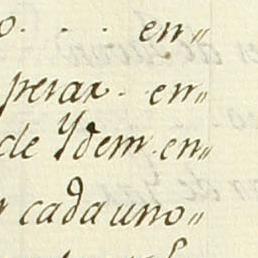 o . . . en〃
perar. en〃
de Ydem en〃
cada uno〃